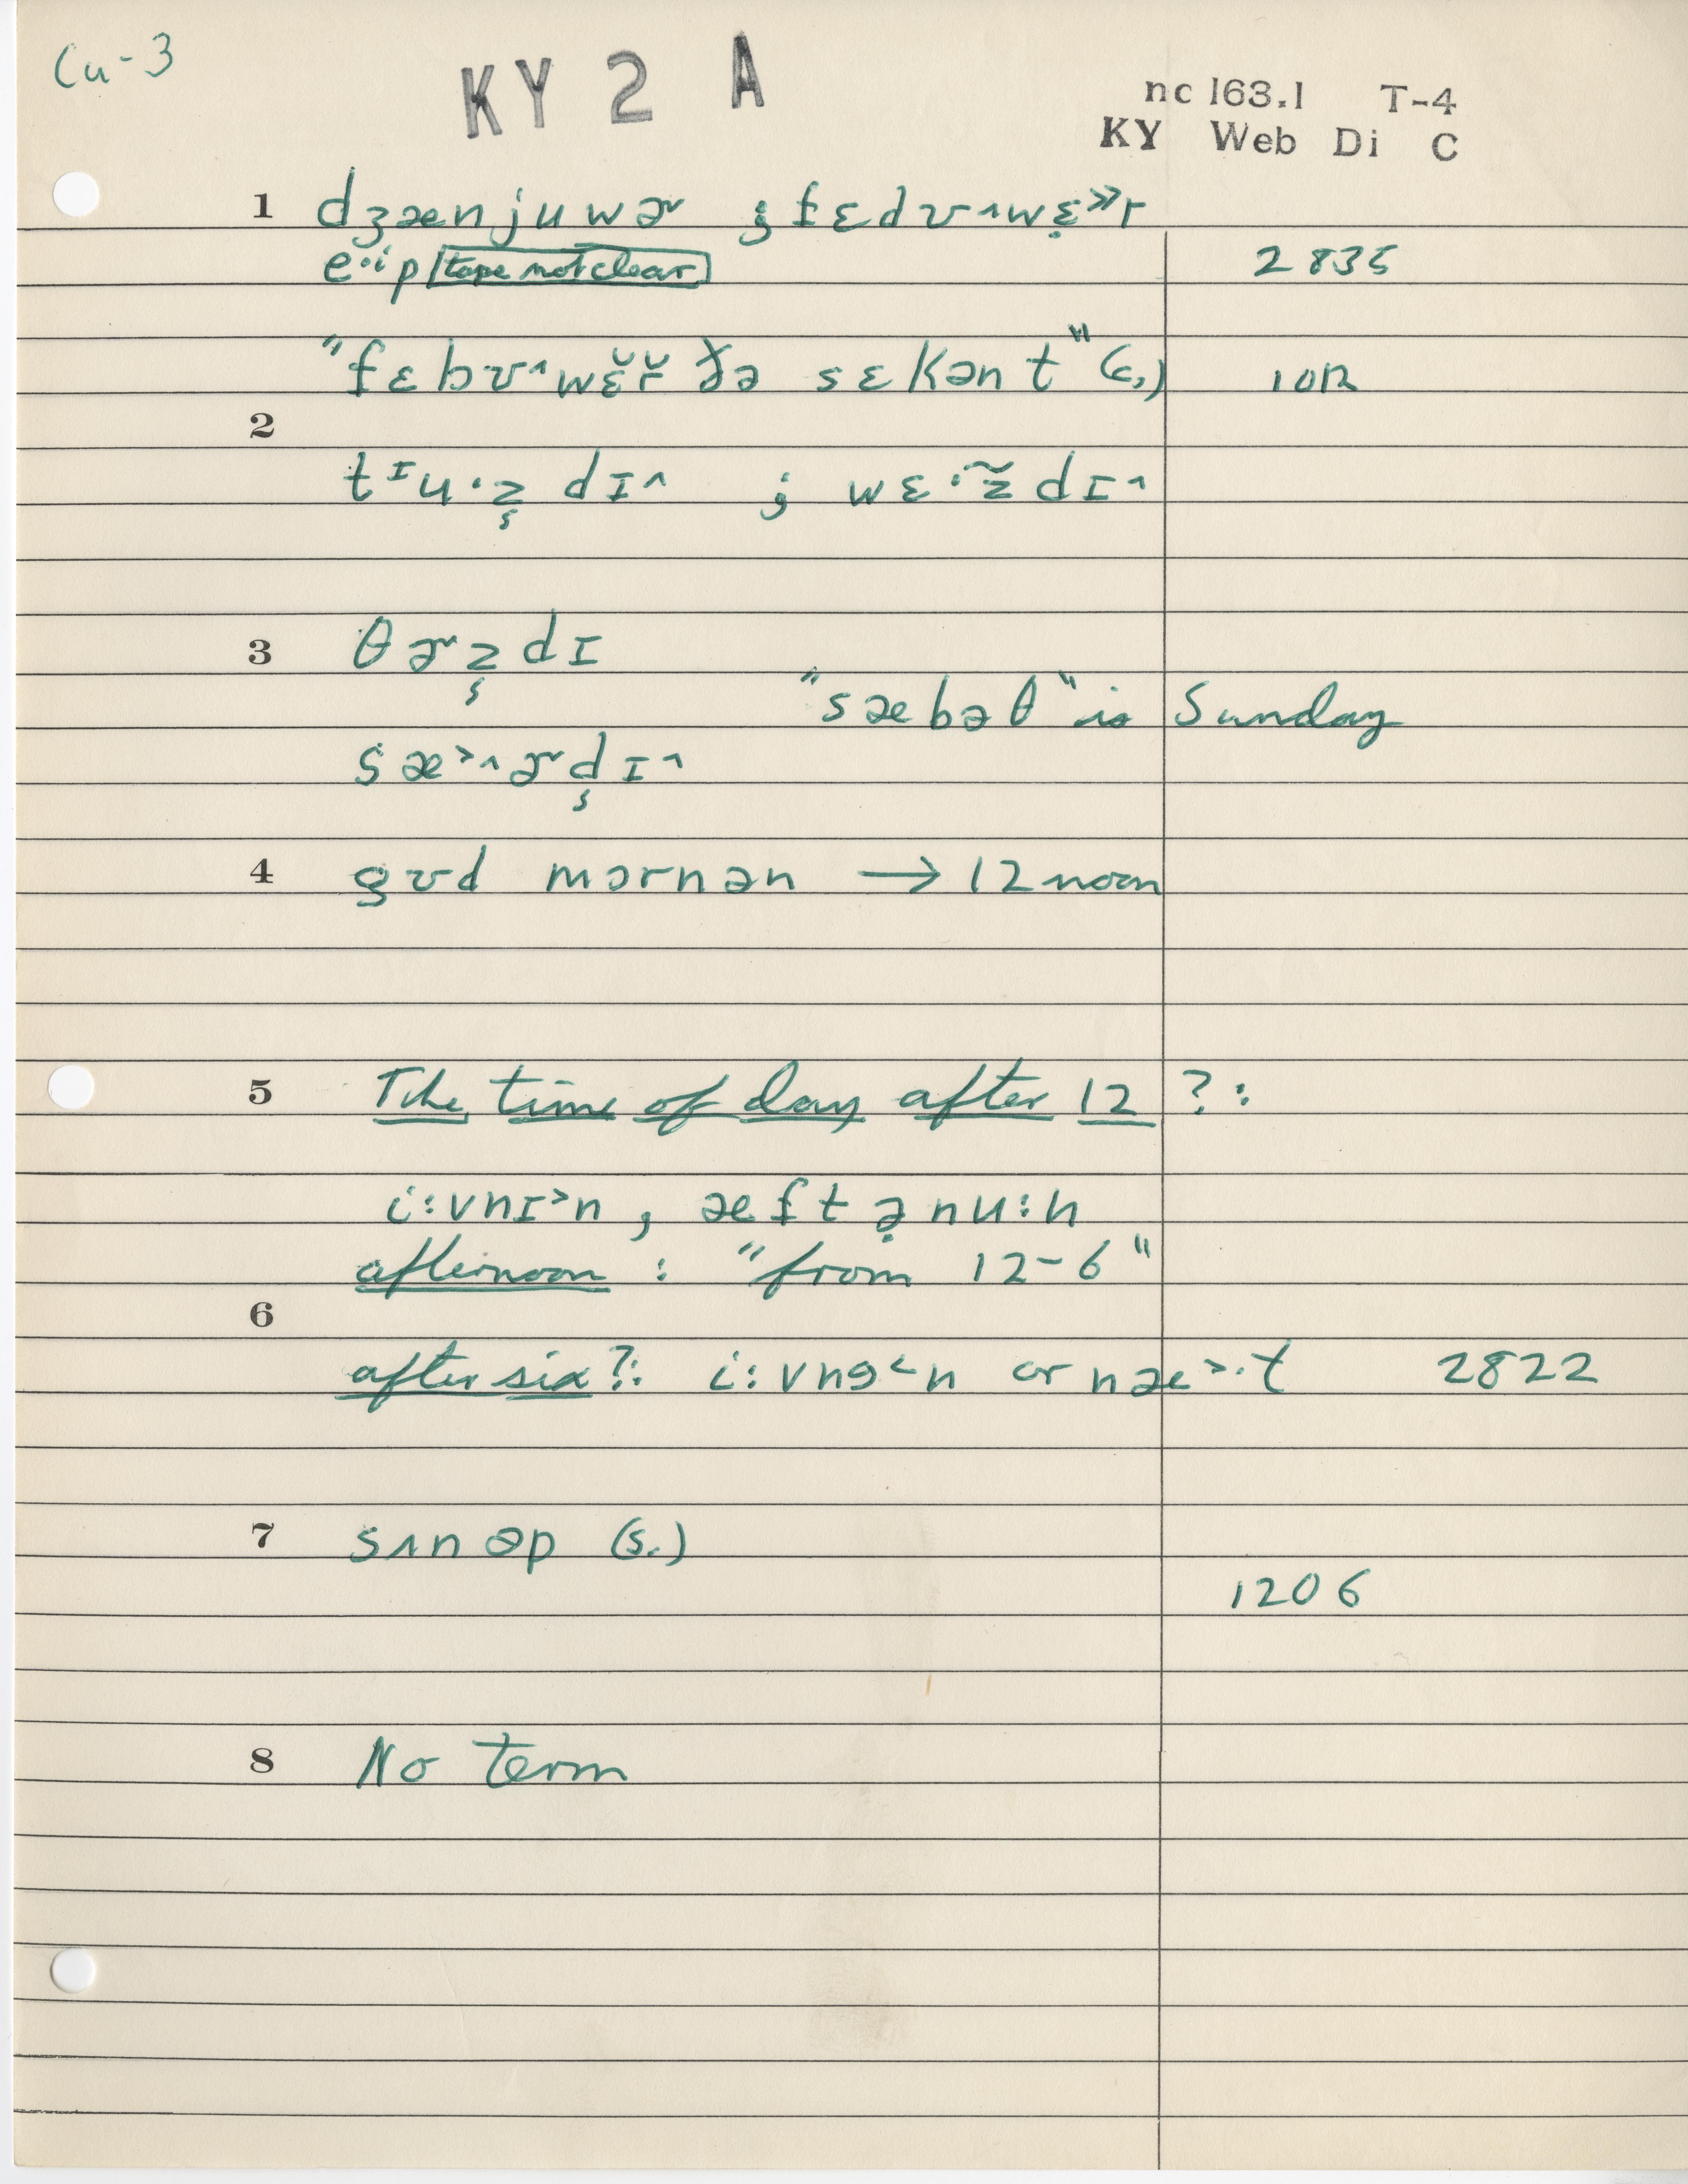 Cu-3
KY 2 A
nc 163.1 T-4
KY Web Di C
1 dʒænjuwɚ ; fɛdʊ^wɛ̣»r
e·ip [tape not clear] 2835
"fɛbʊ^wɛ̆r̆ ðə sɛkənt" (c.) 10R
2
tᶦu·z̬ dɪ^ ; wɛ·z̃dɪ^
3 θɚz̬dɪ
"sæbəθ" is Sunday
sæ>^ɚd̬ɪ^
4 gʊd mɔrnən → 12 noon
5 The time of day after 12 ?:
i:vnɪ>n, æftə̣nu:n
afternoon : "from 12-6"
6
after six?: i:vnɘ<n or næ>·t 2822
7 sʌnəp (s.)
1206
8 No term